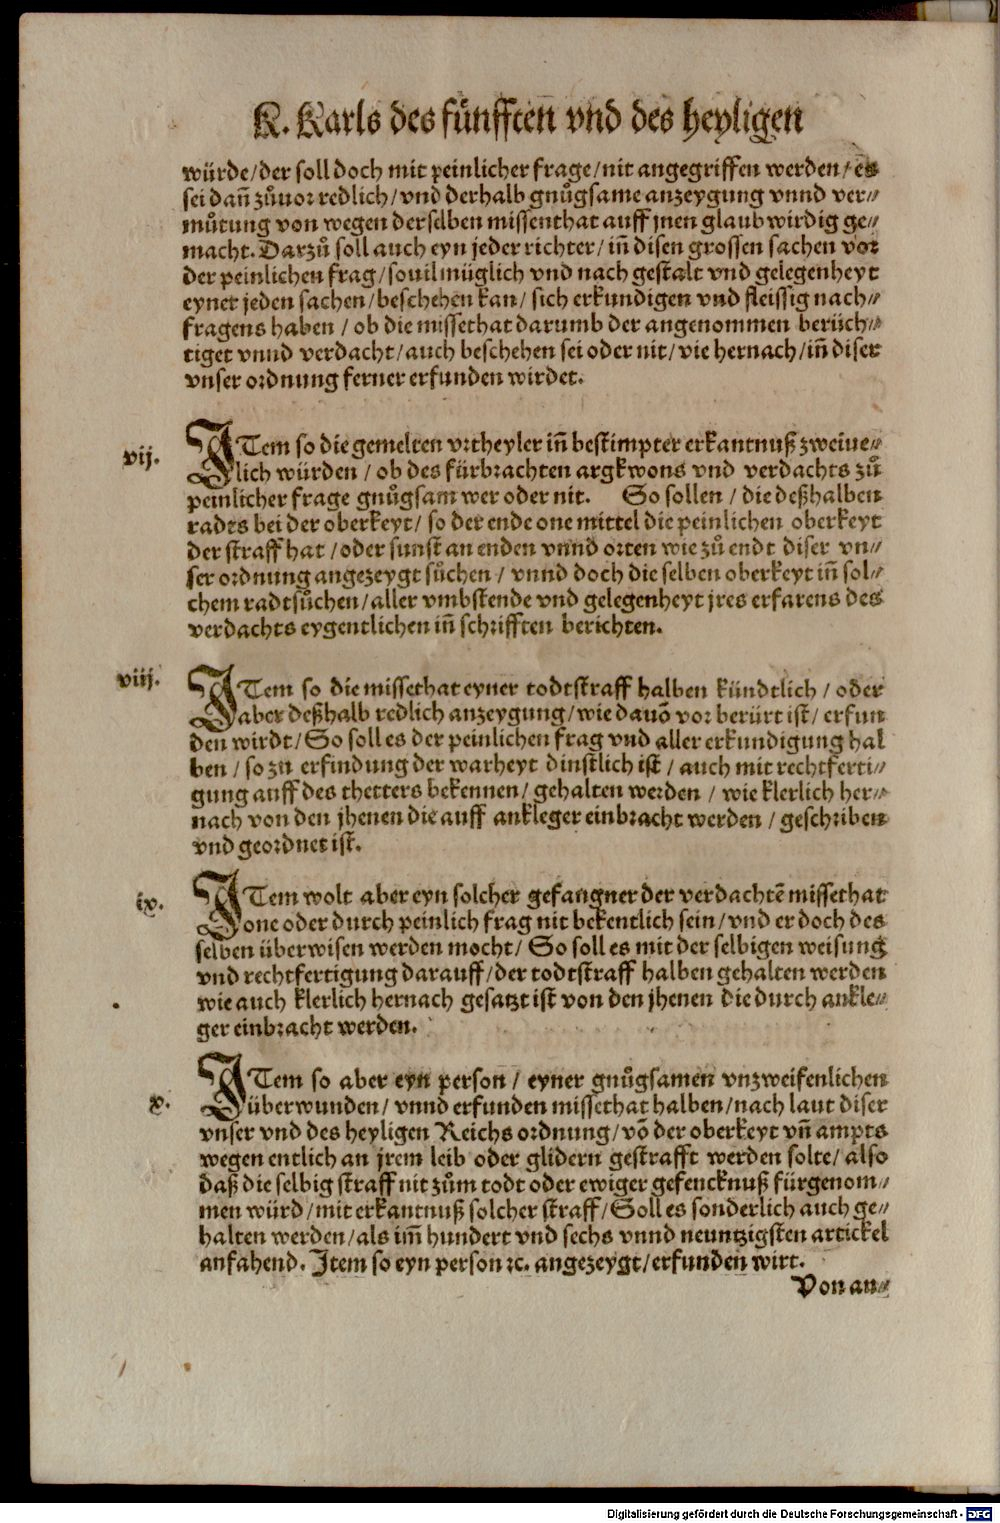 K. Karls des fünfften vnd des heyligen
würde/der soll doch mit peinlicher frage/nit angegriffen werden/es
sei dañ zůuor redlich/vnd derhalb gnůgsame anzeygung vnnd ver⸗
můtung von wegen derselben missenthat auff jnen glaubwirdig ge⸗
macht. Darzů soll auch eyn jeder richter/iñ disen grossen sachen vor
der peinlichen frag/souil müglich vnd nach gestalt vnd gelegenheyt
eyner jeden sachen/beschehen kan/sich erkundigen vnd fleissig nach⸗
fragens haben/ob die missethat darumb der angenommen berüch⸗
tiget vnnd verdacht/auch beschehen sei oder nit/vie hernach/iñ diser
vnser ordnung ferner erfunden wirdet.
vij. ITem so die gemelten vrtheyler iñ bestimpter erkantnuß zweiue⸗
lich würden/ob des fürbrachten argkwons vnd verdachts zů
peinlicher frage gnůgsam wer oder nit. So sollen/die deßhalben
radts bei der oberkeyt/so der ende one mittel die peinlichen oberkeyt
der straff hat/oder sunst an enden vnnd orten wie zů endt diser vn⸗
ser ordnung angezeygt sůchen/vnnd doch die selben oberkeyt iñ sol⸗
chem radtsůchen/aller vmbstende vnd gelegenheyt jres erfarens des
verdachts eygentlichen iñ schrifften berichten.
viij. ITem so die missethat eyner todtstraff halben kündtlich/oder
aber deßhalb redlich anzeygung/wie dauõ vor berürt ist/erfun
den wirdt/So soll es der peinlichen frag vnd aller erkundigung hal
ben/so zu erfindung der warheyt dinstlich ist/auch mit rechtferti⸗
gung auff des thetters bekennen/gehalten werden/wie klerlich her⸗
nach von den jhenen die auff ankleger einbracht werden/geschriben
vnd geordnet ist.
ix. ITem wolt aber eyn solcher gefangner der verdachtẽ missethat
one oder durch peinlich frag nit bekentlich sein/vnd er doch des
selben überwisen werden mocht/So soll es mit der selbigen weisung
vnd rechtfertigung darauff/der todtstraff halben gehalten werden
wie auch klerlich hernach gesatzt ist von den jhenen die durch ankle⸗
ger einbracht werden.
x. ITem so aber eyn person/eyner gnůgsamen vnzweifenlichen
überwunden/vnnd erfunden missethat halben/nach laut diser
vnser vnd des heyligen Reichs ordnung/võ der oberkeyt vñ ampts
wegen entlich an jrem leib oder glidern gestrafft werden solte/also
daß die selbig straff nit zům todt oder ewiger gefencknuß fürgenom⸗
men würd/mit erkantnuß solcher straff/Soll es sonderlich auch ge⸗
halten werden/als im̃ hundert vnd sechs vnnd neuntzigsten artickel
anfahend. Item so eyn person ꝛc. angezeygt/erfunden wirt.
Von an⸗
Digitalisierung gefördert durch die Deutsche Forschungsgemeinschaft - DFG